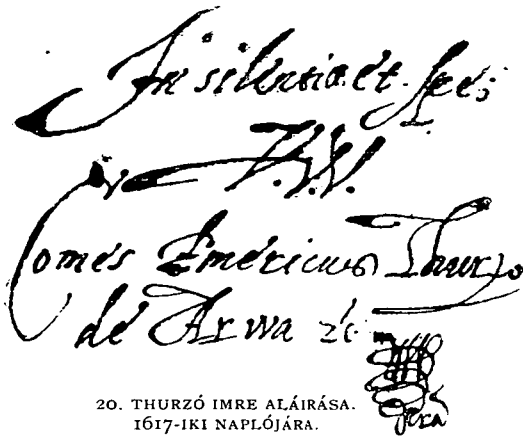 In silentio et spe
Comes Emericus Thurzo
de Arwa &c
20. THURZÓ IMRE ALÁIRÁSA.
1617-IKI NAPLÓJÁRA.